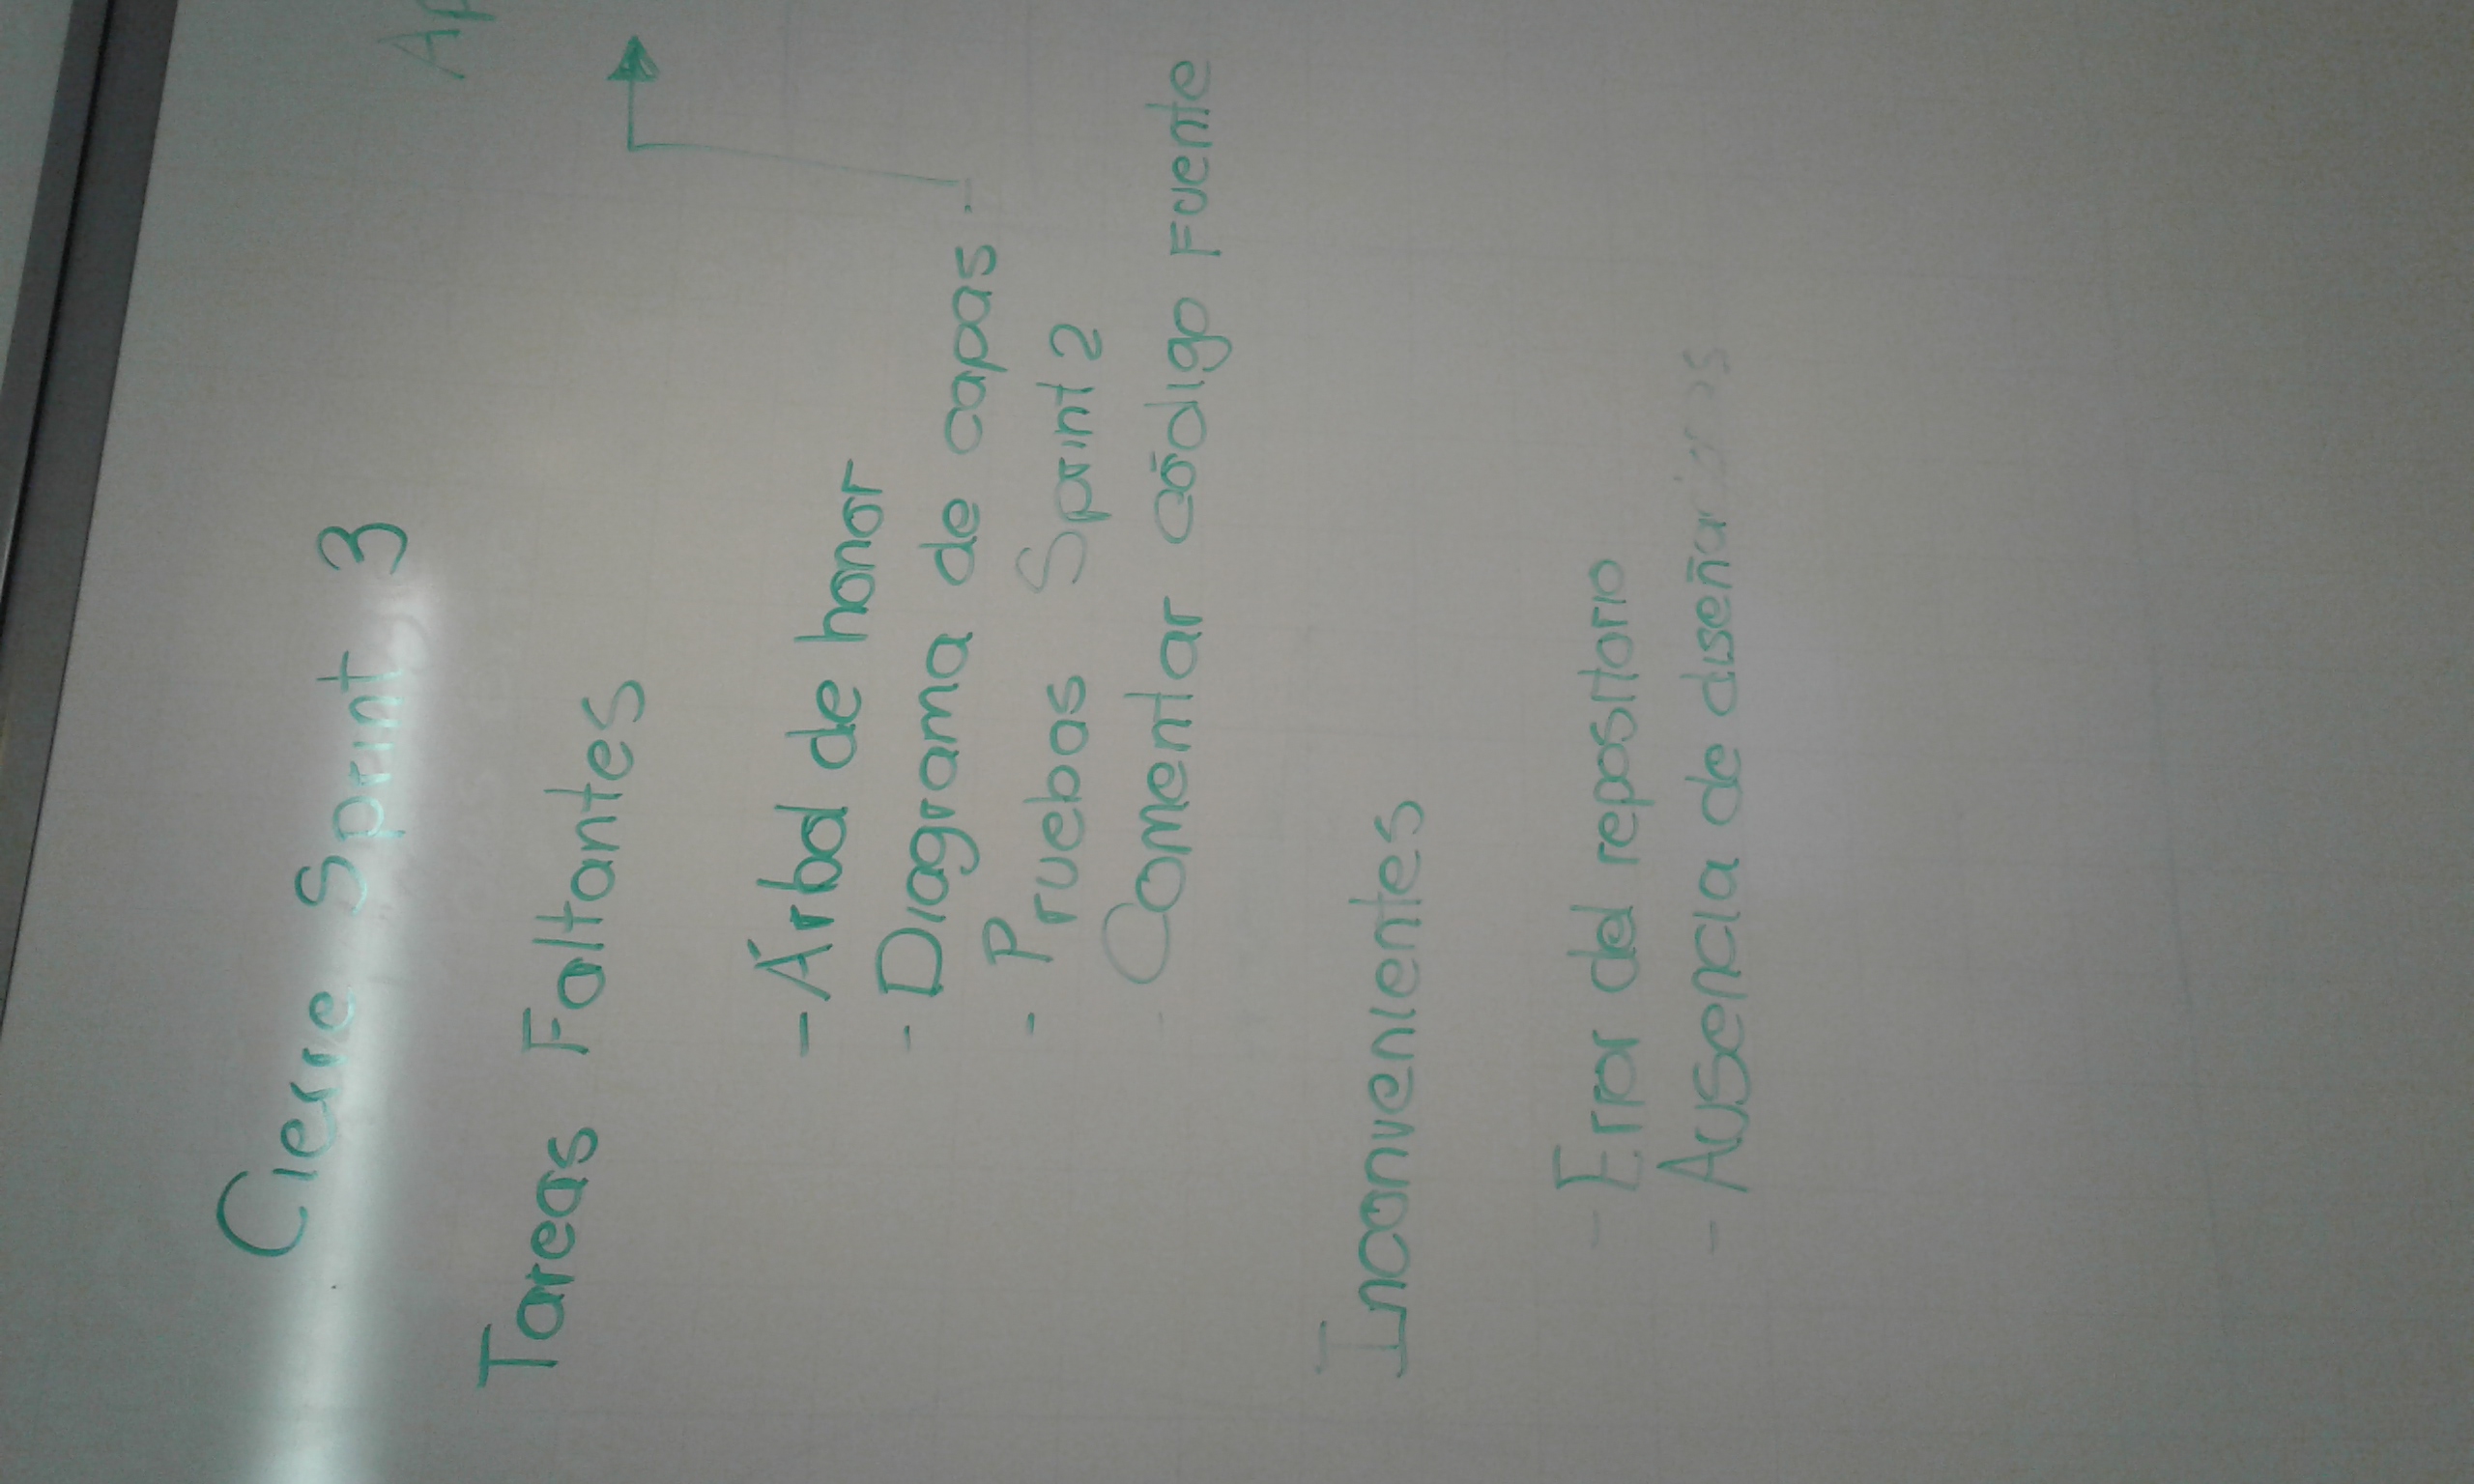 Cierre Sprint 3
Ap
Tareas Faltantes
- Árbol de honor
- Diagrama de capas
- Pruebas Sprint 2
- Comentar código Fuente
Inconvenientes
- Error del repositorio
- Ausencia de